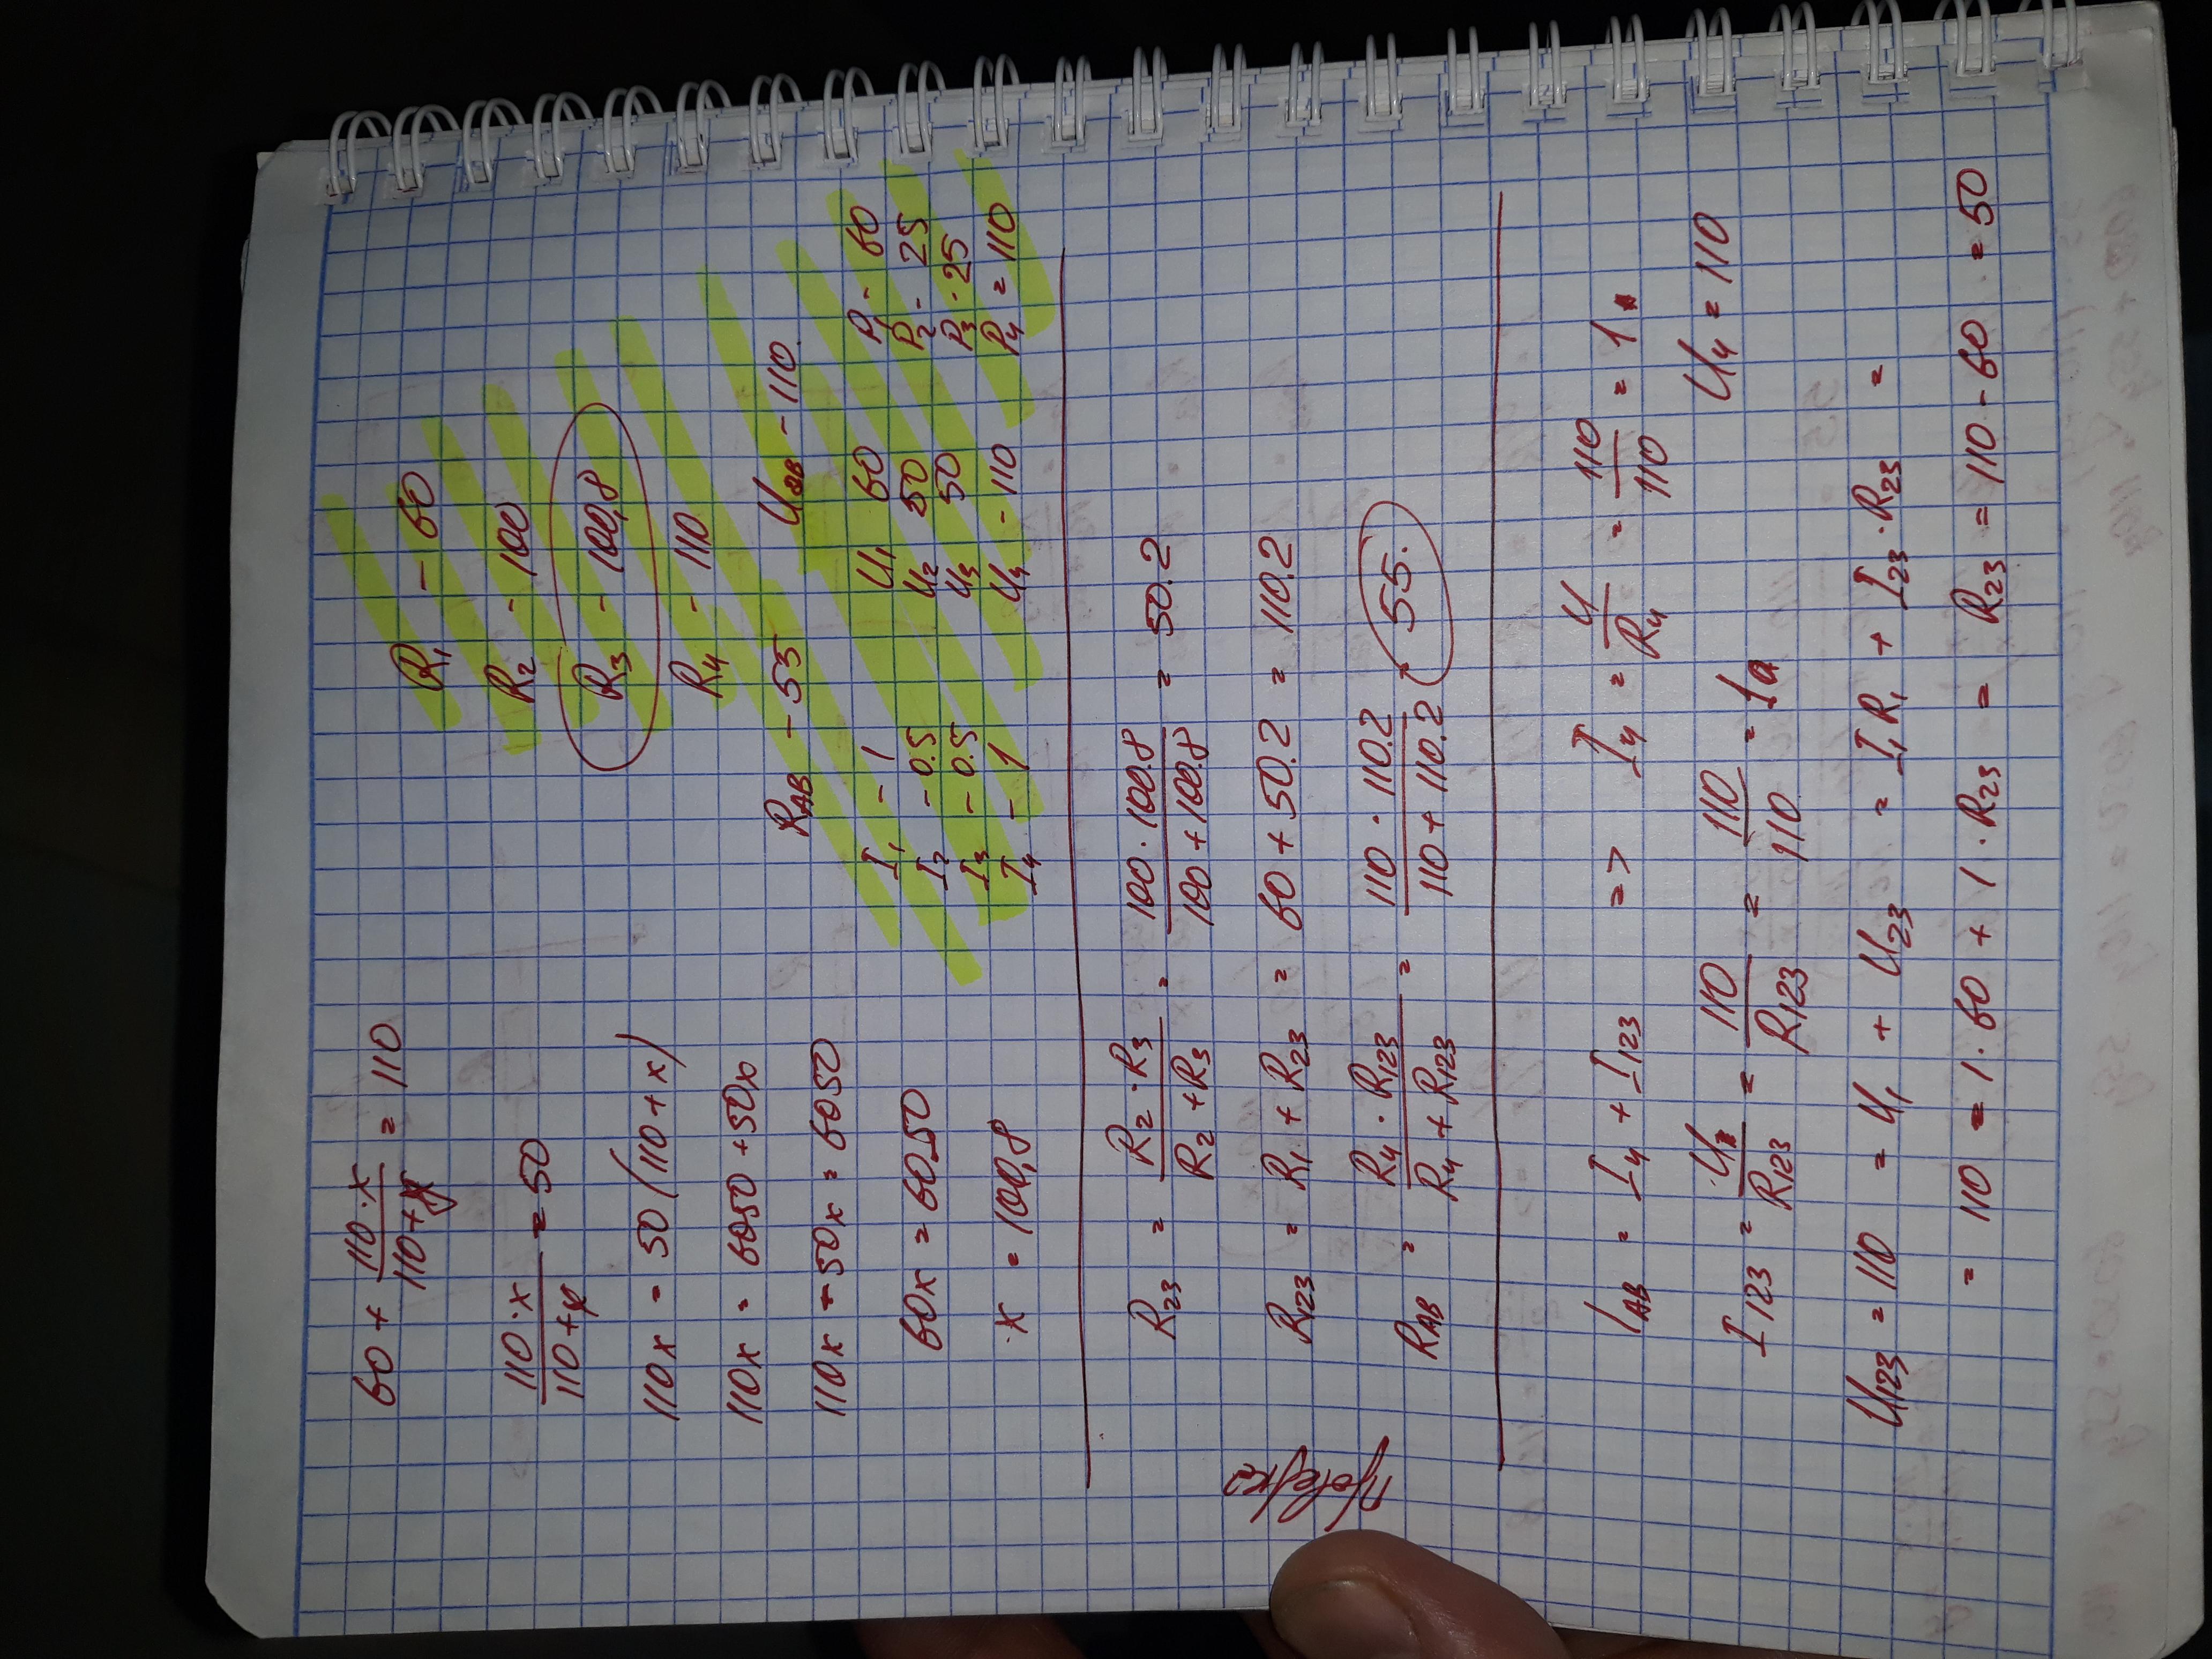 60 + 110·x / 110+x = 110
110·x / 110+x = 50
110x = 50(110+x)
110x = 6050+50x
110x - 50x = 6050
60x = 6050
x = 100,8
R1 - 60
R2 - 100
R3 - 100,8
R4 - 110
RAB - 55 UAB - 110
I1 - 1 U1 60 P1 - 60
I2 - 0.5 U2 50 P2 - 25
I3 - 0.5 U3 50 P3 - 25
I4 - 1 U4 - 110 P4 = 110
Проверка
R23 = R2·R3 / R2+R3 = 100·100.8 / 100+100.8 = 50.2
R123 = R1 + R23 = 60 + 50.2 = 110.2
RAB = R4·R123 / R4+R123 = 110·110.2 / 110+110.2 = 55.
IAB = I4 + I123 => I4 = U / R4 = 110 / 110 = 1
I123 = U / R123 = 110 / R123 = 110 / 110 = 1a U4 = 110
U123 = 110 = U1 + U23 = I1R1 + I23·R23 =
= 110 = 1·60 + 1·R23 = R23 = 110-60 = 50